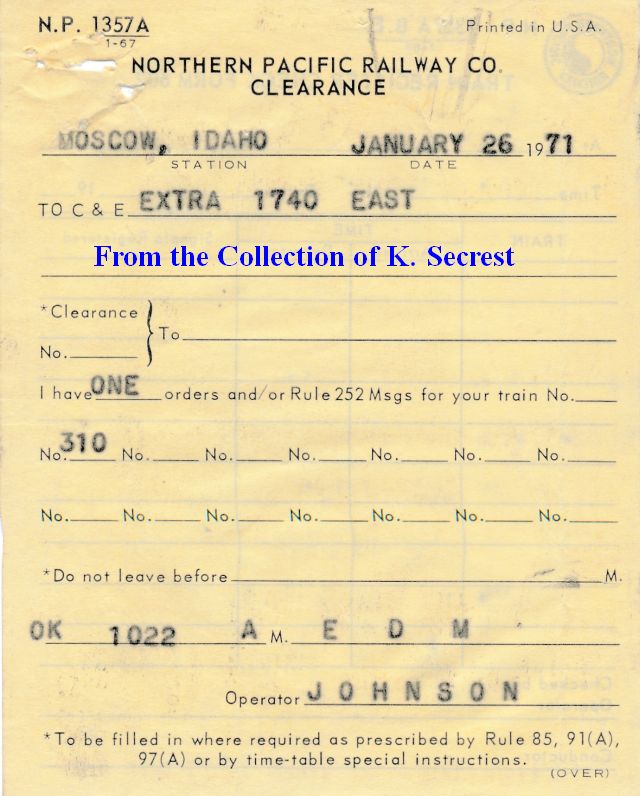 N.P. 1357A Printed in U.S.A.
1-67
NORTHERN PACIFIC RAILWAY CO.
CLEARANCE
MOSCOW, IDAHO JANUARY 26 1971
STATION DATE
TO C & E EXTRA 1740 EAST
From the Collection of K. Secrest
*Clearance
No. To
I have ONE orders and/or Rule 252 Msgs for your train No.
No. 310 No. No. No. No. No. No.
No. No. No. No. No. No. No.
*Do not leave before M.
OK 1022 A M. E D M
Operator JOHNSON
*To be filled in where required as prescribed by Rule 85, 91(A),
97(A) or by time-table special instructions.
(OVER)